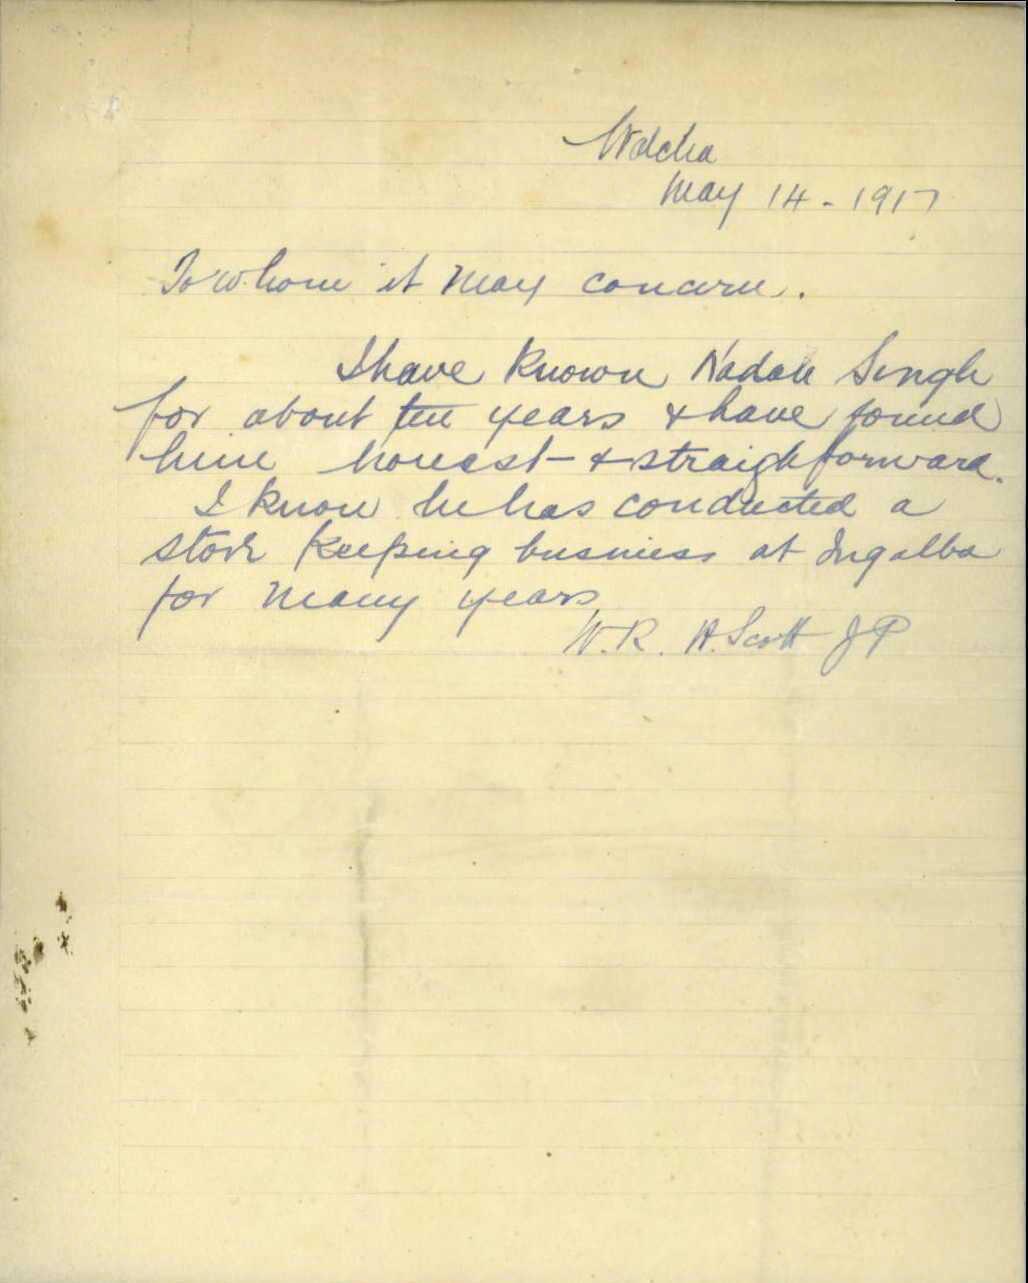 Walcha
May 14 - 1917
To whom it may concern.
I have known Nadah Singh
for about ten years & have found
him honest & straighforward.
I know he has conducted a
store keeping business at Ingalba
for many years
W. R. A. Scott J P